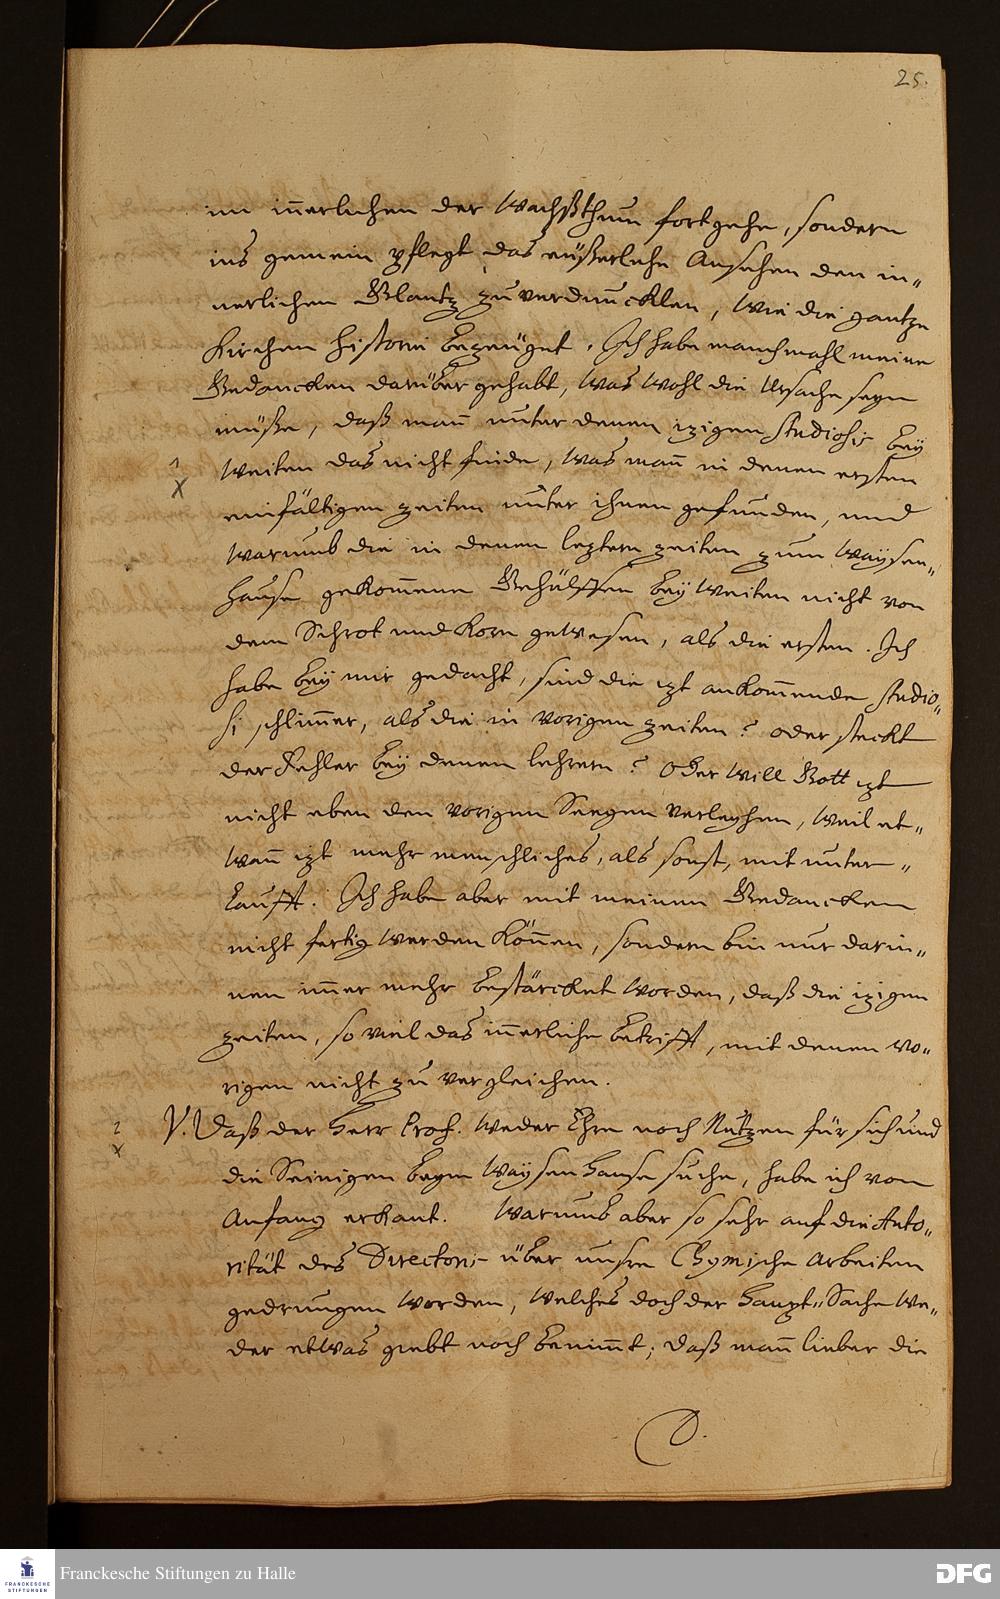 25.
im inerlichen der Wachßthum fortgehe, sondern
ins gemein pflegt das eüßerliche Ansehen den in„
nerlichen Glantz zu verduncklen, wie die gantze
Kirchen Historie bezeüget. Ich habe manchmahl meine
Gedancken darüber gehabt, was wohl die Ursache seyn
müße, daß man unter denen izigen Studiosis bey
1
weiten das nicht finde, was man in denen ersten
X
einfältigen zeiten unter ihnen gefunden, und
warumb die in denen leztern zeiten zum Waysen„
hause gekommene Gehülffen bey weiten nicht von
dem Schrot und Korn gewesen, als die ersten. Ich
habe bey mir gedacht, sind die izt ankommende Studio„
si schlimmer, als die in vorigen zeiten? oder steckt
der Fehler bey denen lehrern? Oder will Gott izt
nicht eben den vorigen Seegen verleyhen, weil et„
wan izt mehr menschliches, als sonst, mit unter„
laufft. Ich habe aber mit meinen Gedancken
nicht fertig werden können, sondern bin nur darin„
nen immer mehr bestärcket worden, daß die izigen
zeiten, so viel das inerliche betrifft, mit denen vo„
rigen nicht zu vergleichen.
2
V. Daß der Herr Prof. weder Ehre noch Nutzen für sich und
X
die Seinigen beym Waysenhause suche, habe ich vom
Anfang erkant. Warumb aber so sehr auf die Auto„
rität des Directoris über unsre Chymische Arbeiten
gedrungen worden, welches doch der Haupt„Sache we„
der etwas giebt noch benimt; daß man lieber die